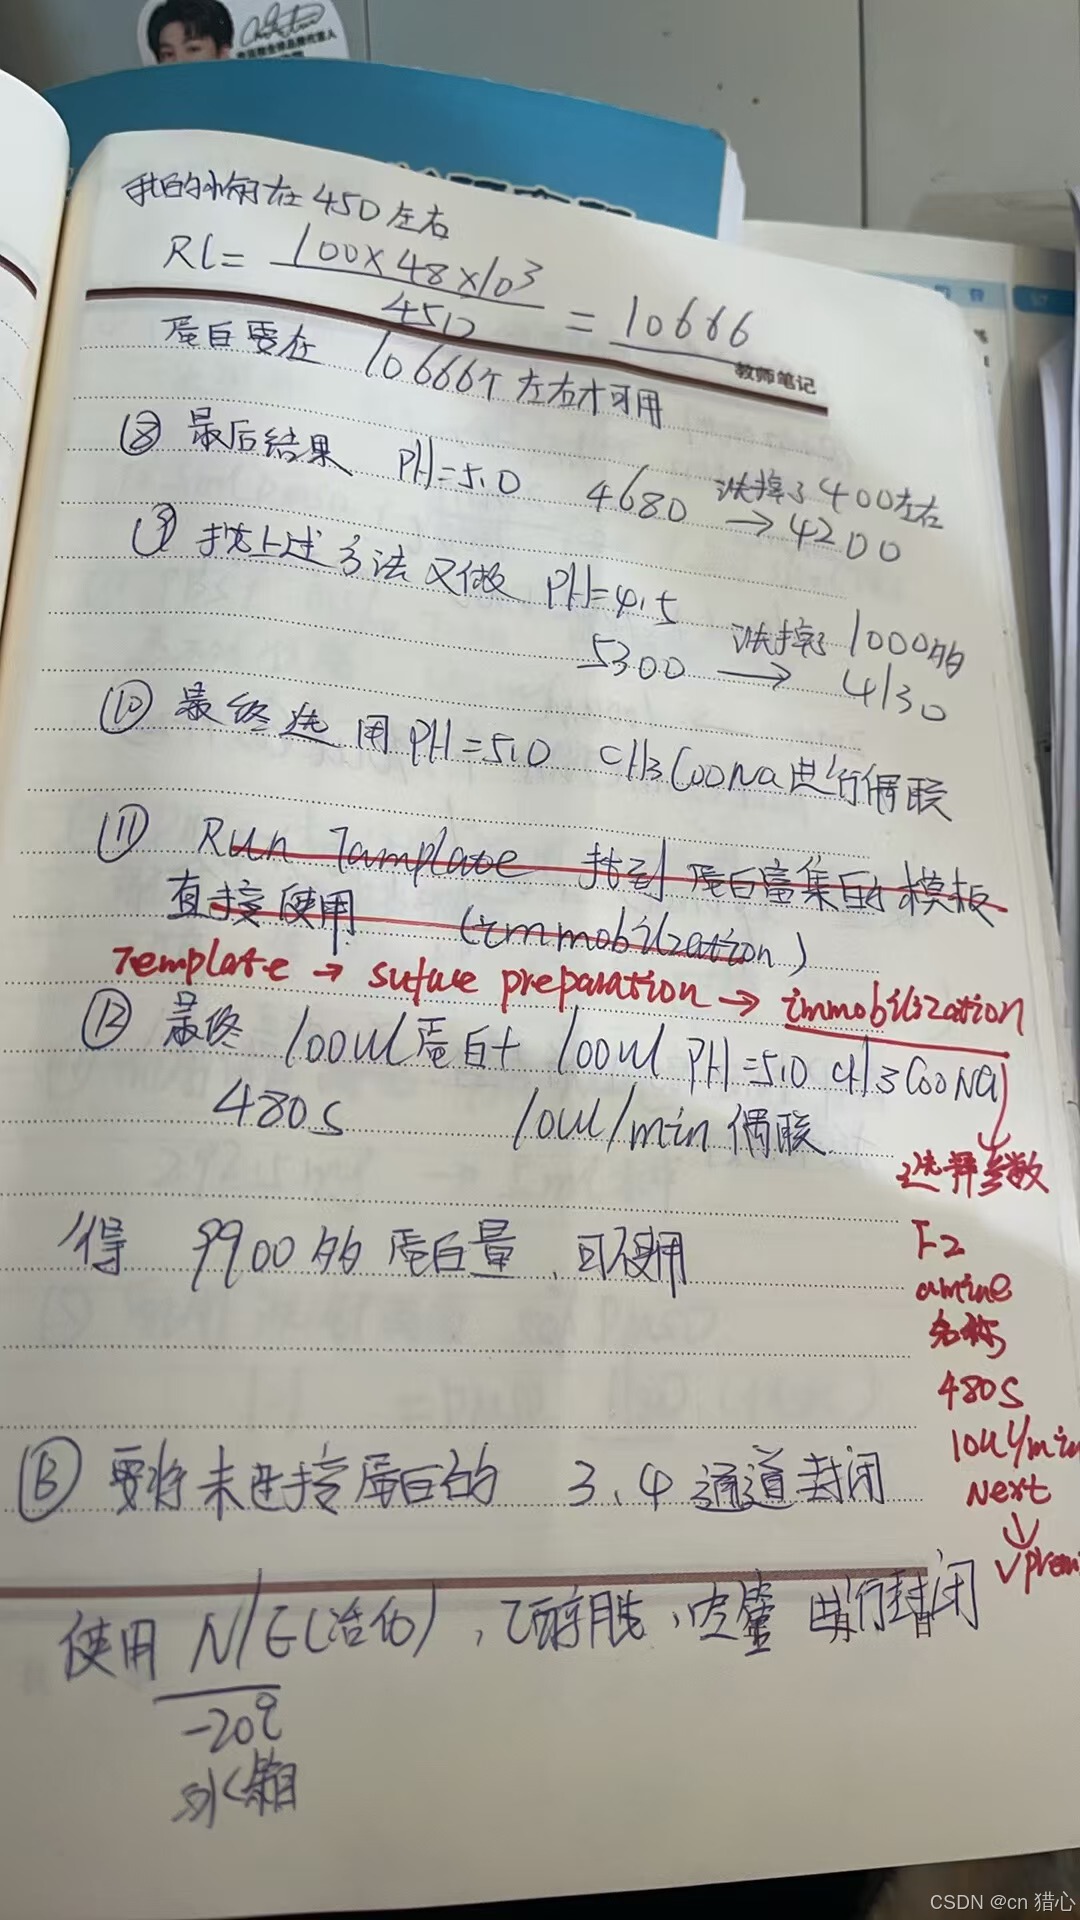 我的小的在450左右
RL= 100×48×10³ / 450 = 10666
教师笔记
蛋白要在 10666个左右才可用
⑧ 最后结果 PH=5.0 4680 洗掉了400左右 → 4200
⑨ 按上述方法又做 PH=4.5
5300 洗掉了1000的 → 4130
⑩ 最终选用PH=5.0 CH3COONa进行偶联
⑪ Run Tamplate 找到蛋白富集的模板
直接使用 (immobilization)
Template → suface preparation → immobilization
⑫ 最终 100ul蛋白+ 100ul PH=5.0 CH3COONa
480s 10ul/min 偶联
选择参数
得 9900的蛋白量,可
F2
amine
名称
480s
10ul/min
Next
⑬ 要将未连接蛋白的 3.4通道封闭
使用 N/E(活化),乙醇胺, 进行封闭
-20℃
冰箱
CSDN @cn 猎心